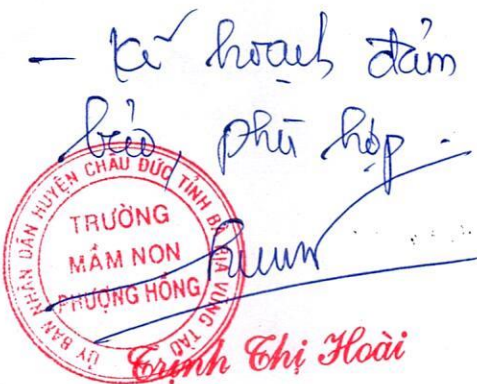 - Kế hoạch đảm
bảo phù hợp.
ỦY BAN NHÂN DÂN HUYỆN CHÂU ĐỨC TỈNH BÀ RỊA VŨNG TÀU
TRƯỜNG
MẦM NON
PHƯỢNG HỒNG
Trịnh Thị Hoài